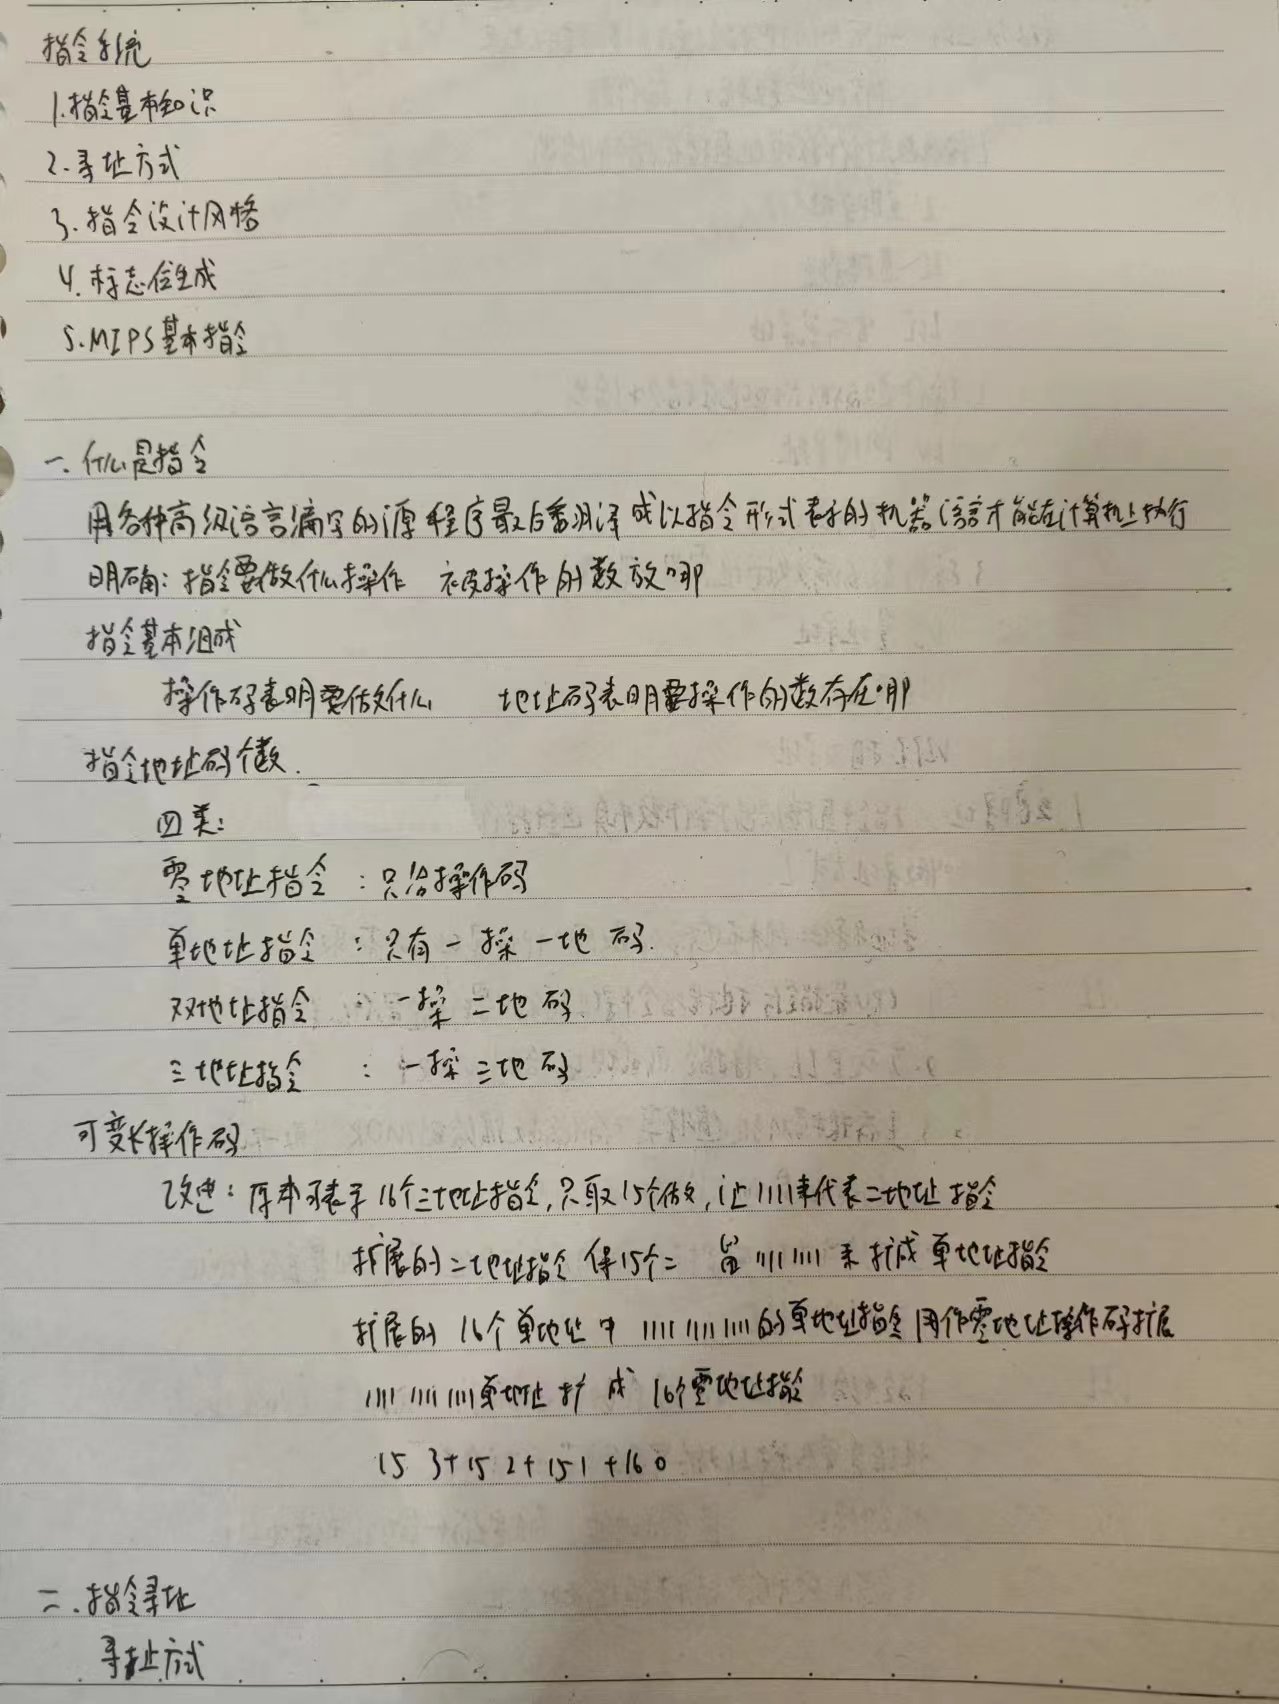 指令系统
1.指令基本知识
2.寻址方式
3.指令设计风格
4.标志位生成
5.MIPS基本指令
一.什么是指令
用各种高级语言编写的源程序最后要翻译成以指令形式表示的机器语言才能在计算机上执行
明确:指令要做什么操作 被操作的数放哪
指令基本组成
操作码表明要做什么 地址码表明要操作的数存在哪
指令地址码个数.
四类:
零地址指令:只给操作码
单地址指令:只有一操一地码.
双地址指令:一操二地码
三地址指令:一操三地码
可变长操作码
改进:原本可表示16个三地址指令,只取15个做,让1111来代表二地址指令
扩展的二地址指令保15个二 留1111 1111来扩成单地址指令
扩展的16个单地址中1111 1111 1111的单地址指令用作零地址操作码扩展
1111 1111 1111单地址扩成16个零地址指令
15 3+15 2+15 1+16 0
二.指令寻址
寻址方式